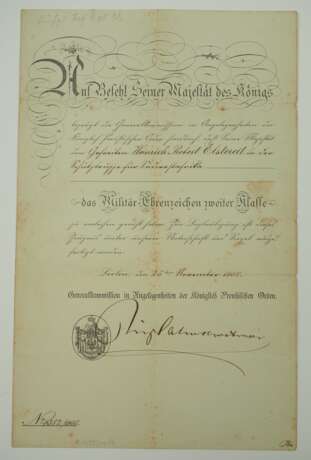 Auf Befehl Seiner Majestät des Königs
bezeugt die General-Kommission in Angelegenheiten der
Königlich Preußischen Orden hierdurch, daß Seine Majestät
dem Gefreiten Heinrich Robert in der
Schutztruppe für Südwestafrika
das Militär-Ehrenzeichen zweiter Klasse
zu verleihen geruht haben. Zur Beglaubigung ist dieses
Zeugniß unter unserer Unterschrift und Siegel ausge-
fertigt worden.
Berlin, den 25ten November
Generalkommission in Angelegenheiten der Königlich Preußischen Orden.